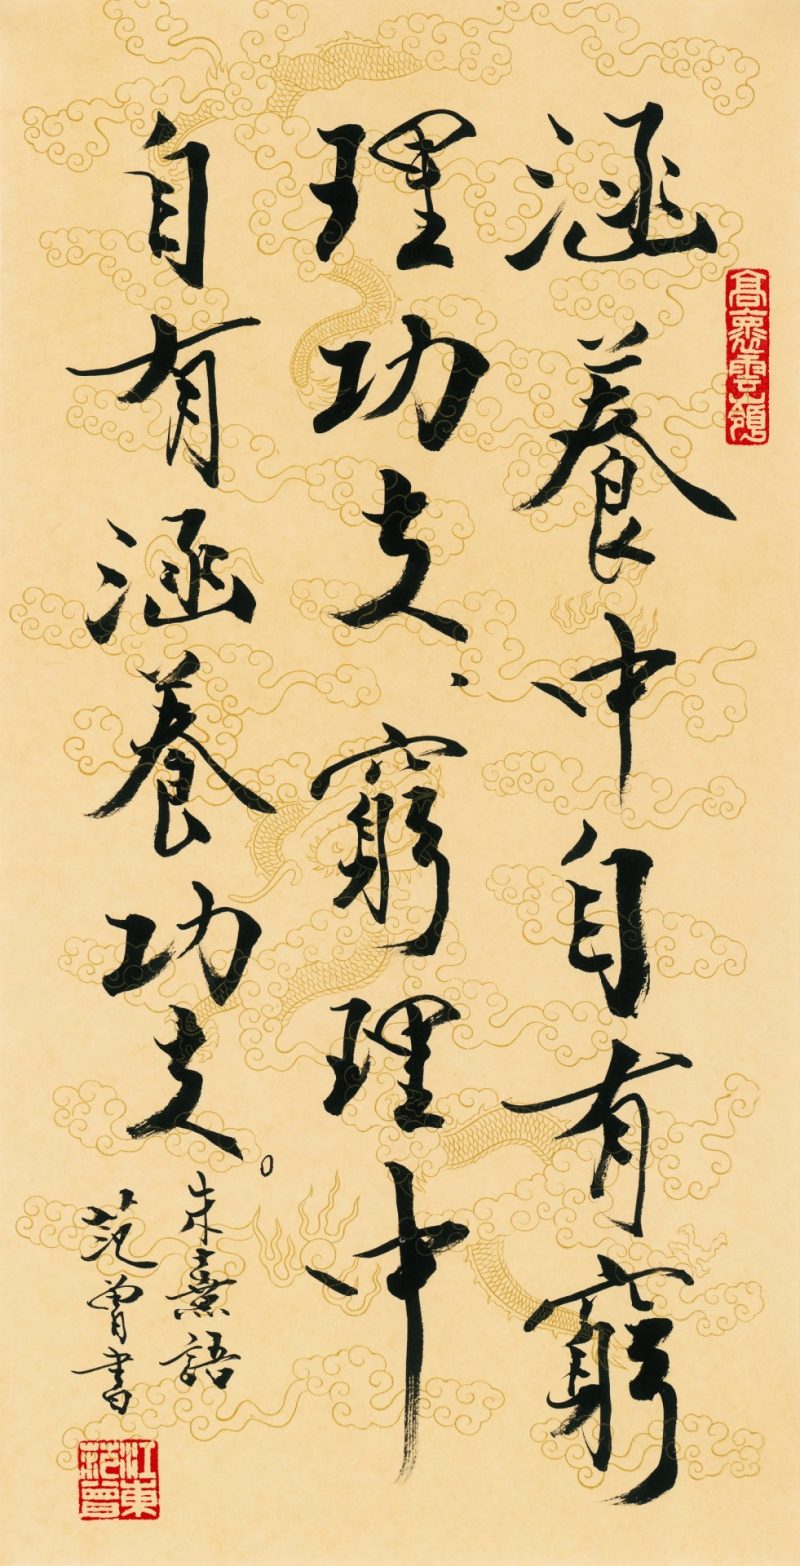 涵養中自有窮
理功夫、窮理中
自有涵養功夫。
朱熹語
范曾書
江東
范曾
高 雲嶺